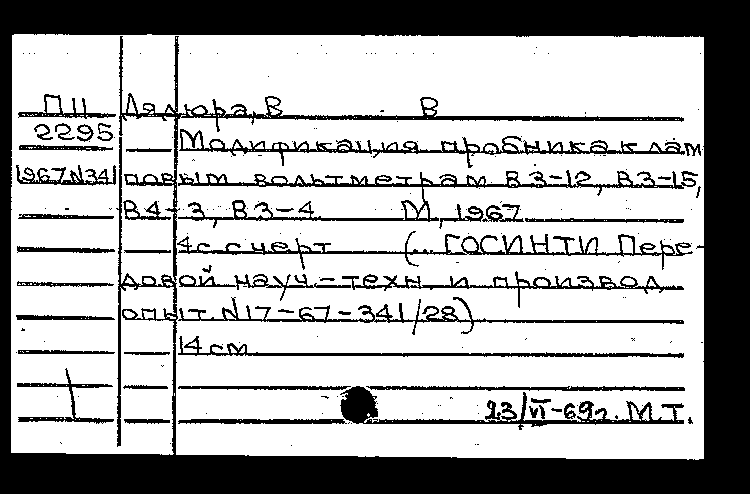 П11 Дядюра, В В
2295 Модификация пробника к лам
1967 N341 повым вольтметрам В3-12, В3-15,
В4-3, В3-4 М, 1967
4с с черт (.. ГОСИНТИ Пере-
довой науч-техн. и производ
опыт. N17-67-341/28)
14 см
23/VI-69г. М.Т.